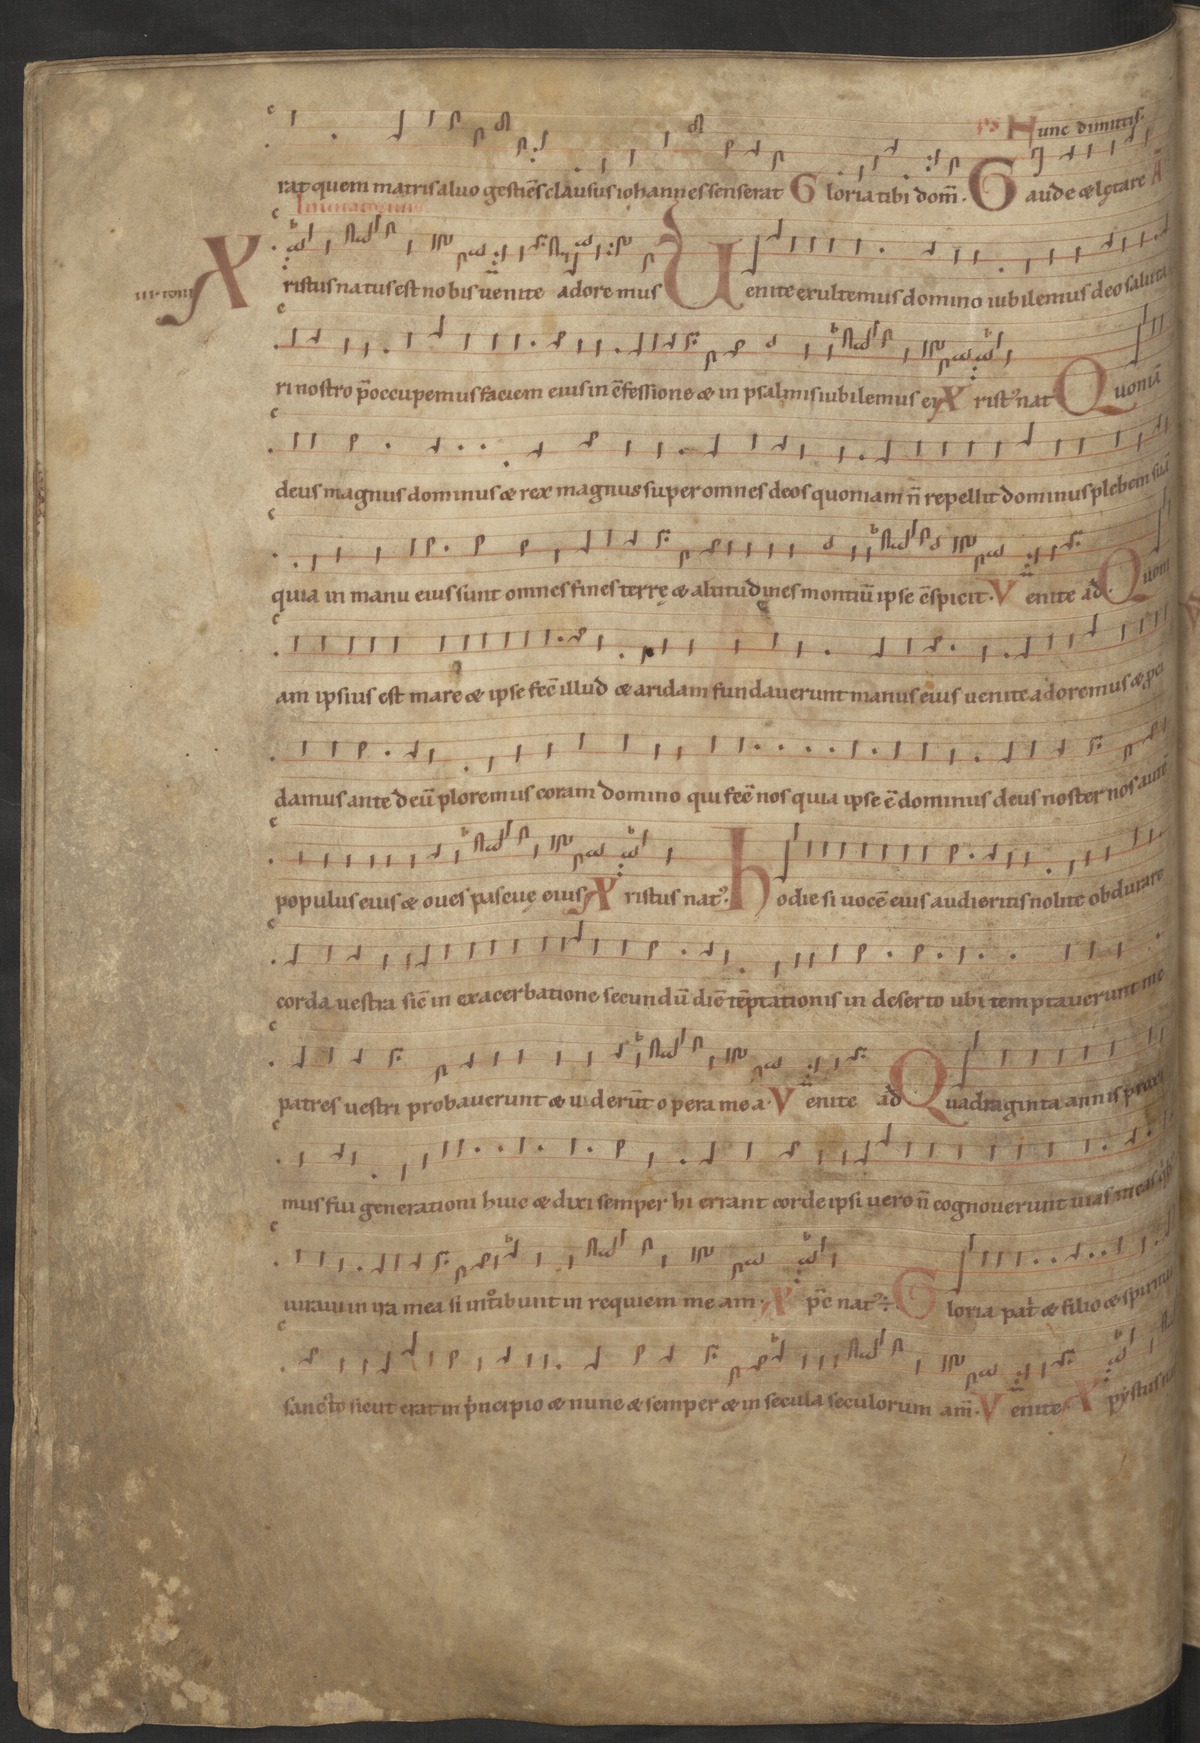 ps Nunc dimittis.
rat quem matris aluo gestiēs clausus iohannes senserat Gloria tibi dom̄. Gaude & lętare
Inuitatorium
Xristus natus est nobis uenite adoremus Uenite exultemus domino iubilemus deo saluta
ri nostro p̄occupemus faciem eius in c̄fessione & in psalmis iubilemus ei Xrist᾽ nat Quoniā
deus magnus dominus & rex magnus super omnes deos quoniam n̄ repellit dominus plebem suā
quia in manu eius sunt omnes fines terrę & altitudines montiū ipse c̄spicit. Venite ad Quoni
am ipsius est mare & ipse fec̄ illud & aridam fundauerunt manus eius uenite adoremus & p̄ci
damus ante deū ploremus coram domino qui fec̄ nos quia ipse ē dominus deus noster nos autē
populus eius & oues pascue eius Xristus nat᾽. Hodie si uocē eius audieritis nolite obdurare
corda uestra sic̄ in exacerbatione secundū diē tēptationis in deserto ubi temptauerunt me
patres uestri probauerunt & uiderūt opera mea. Venite ad Quadraginta annis proxi
mus fui generationi huic & dixi semper hi errant corde ipsi uero n̄ cognouerunt uias meas
iuraui in ira mea si introibunt in requiem meam. Xp̄c nat᾽ Gloria pat & filio & spiritui
sancto sicut erat in p̄ncipio & nunc & semper & in secula seculorum am̄. Venite. Xpȳstus